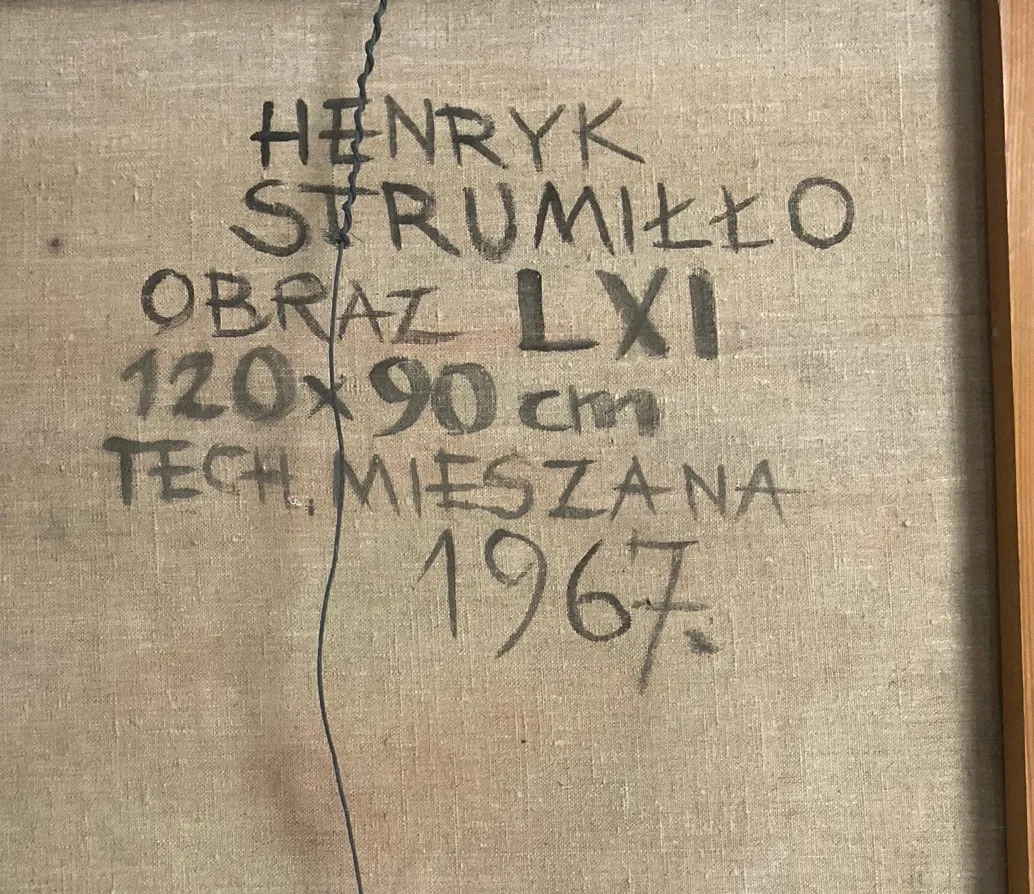 HENRYK
STRUMIŁŁO
OBRAZ LXI
120x90 cm
TECH. MIESZANA
1967.